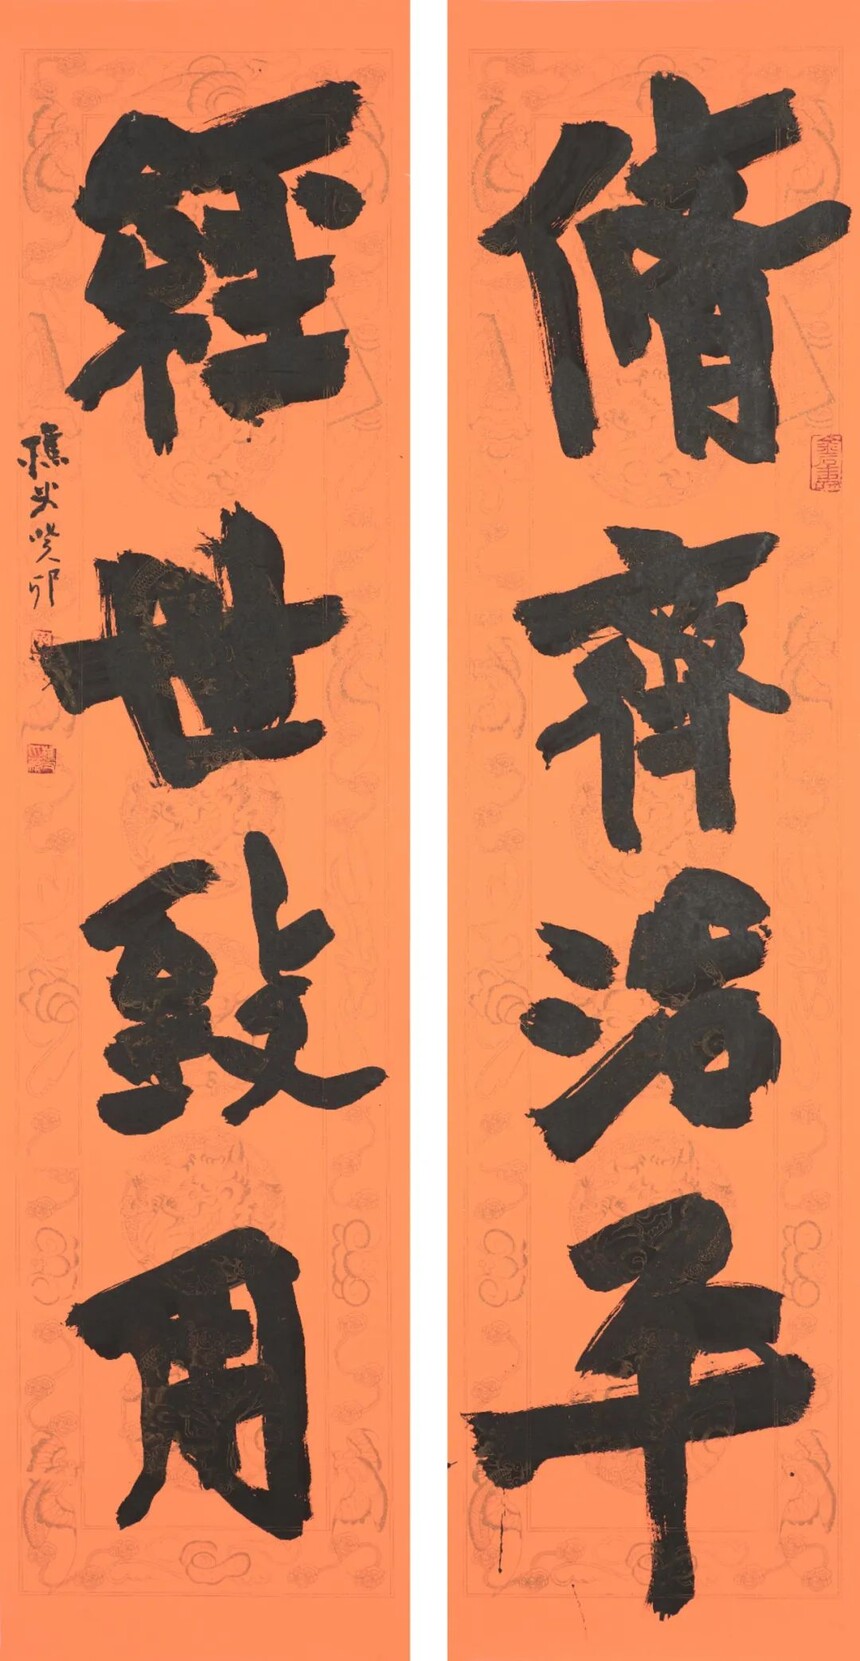 脩齊治平
經世致用
樵 癸卯